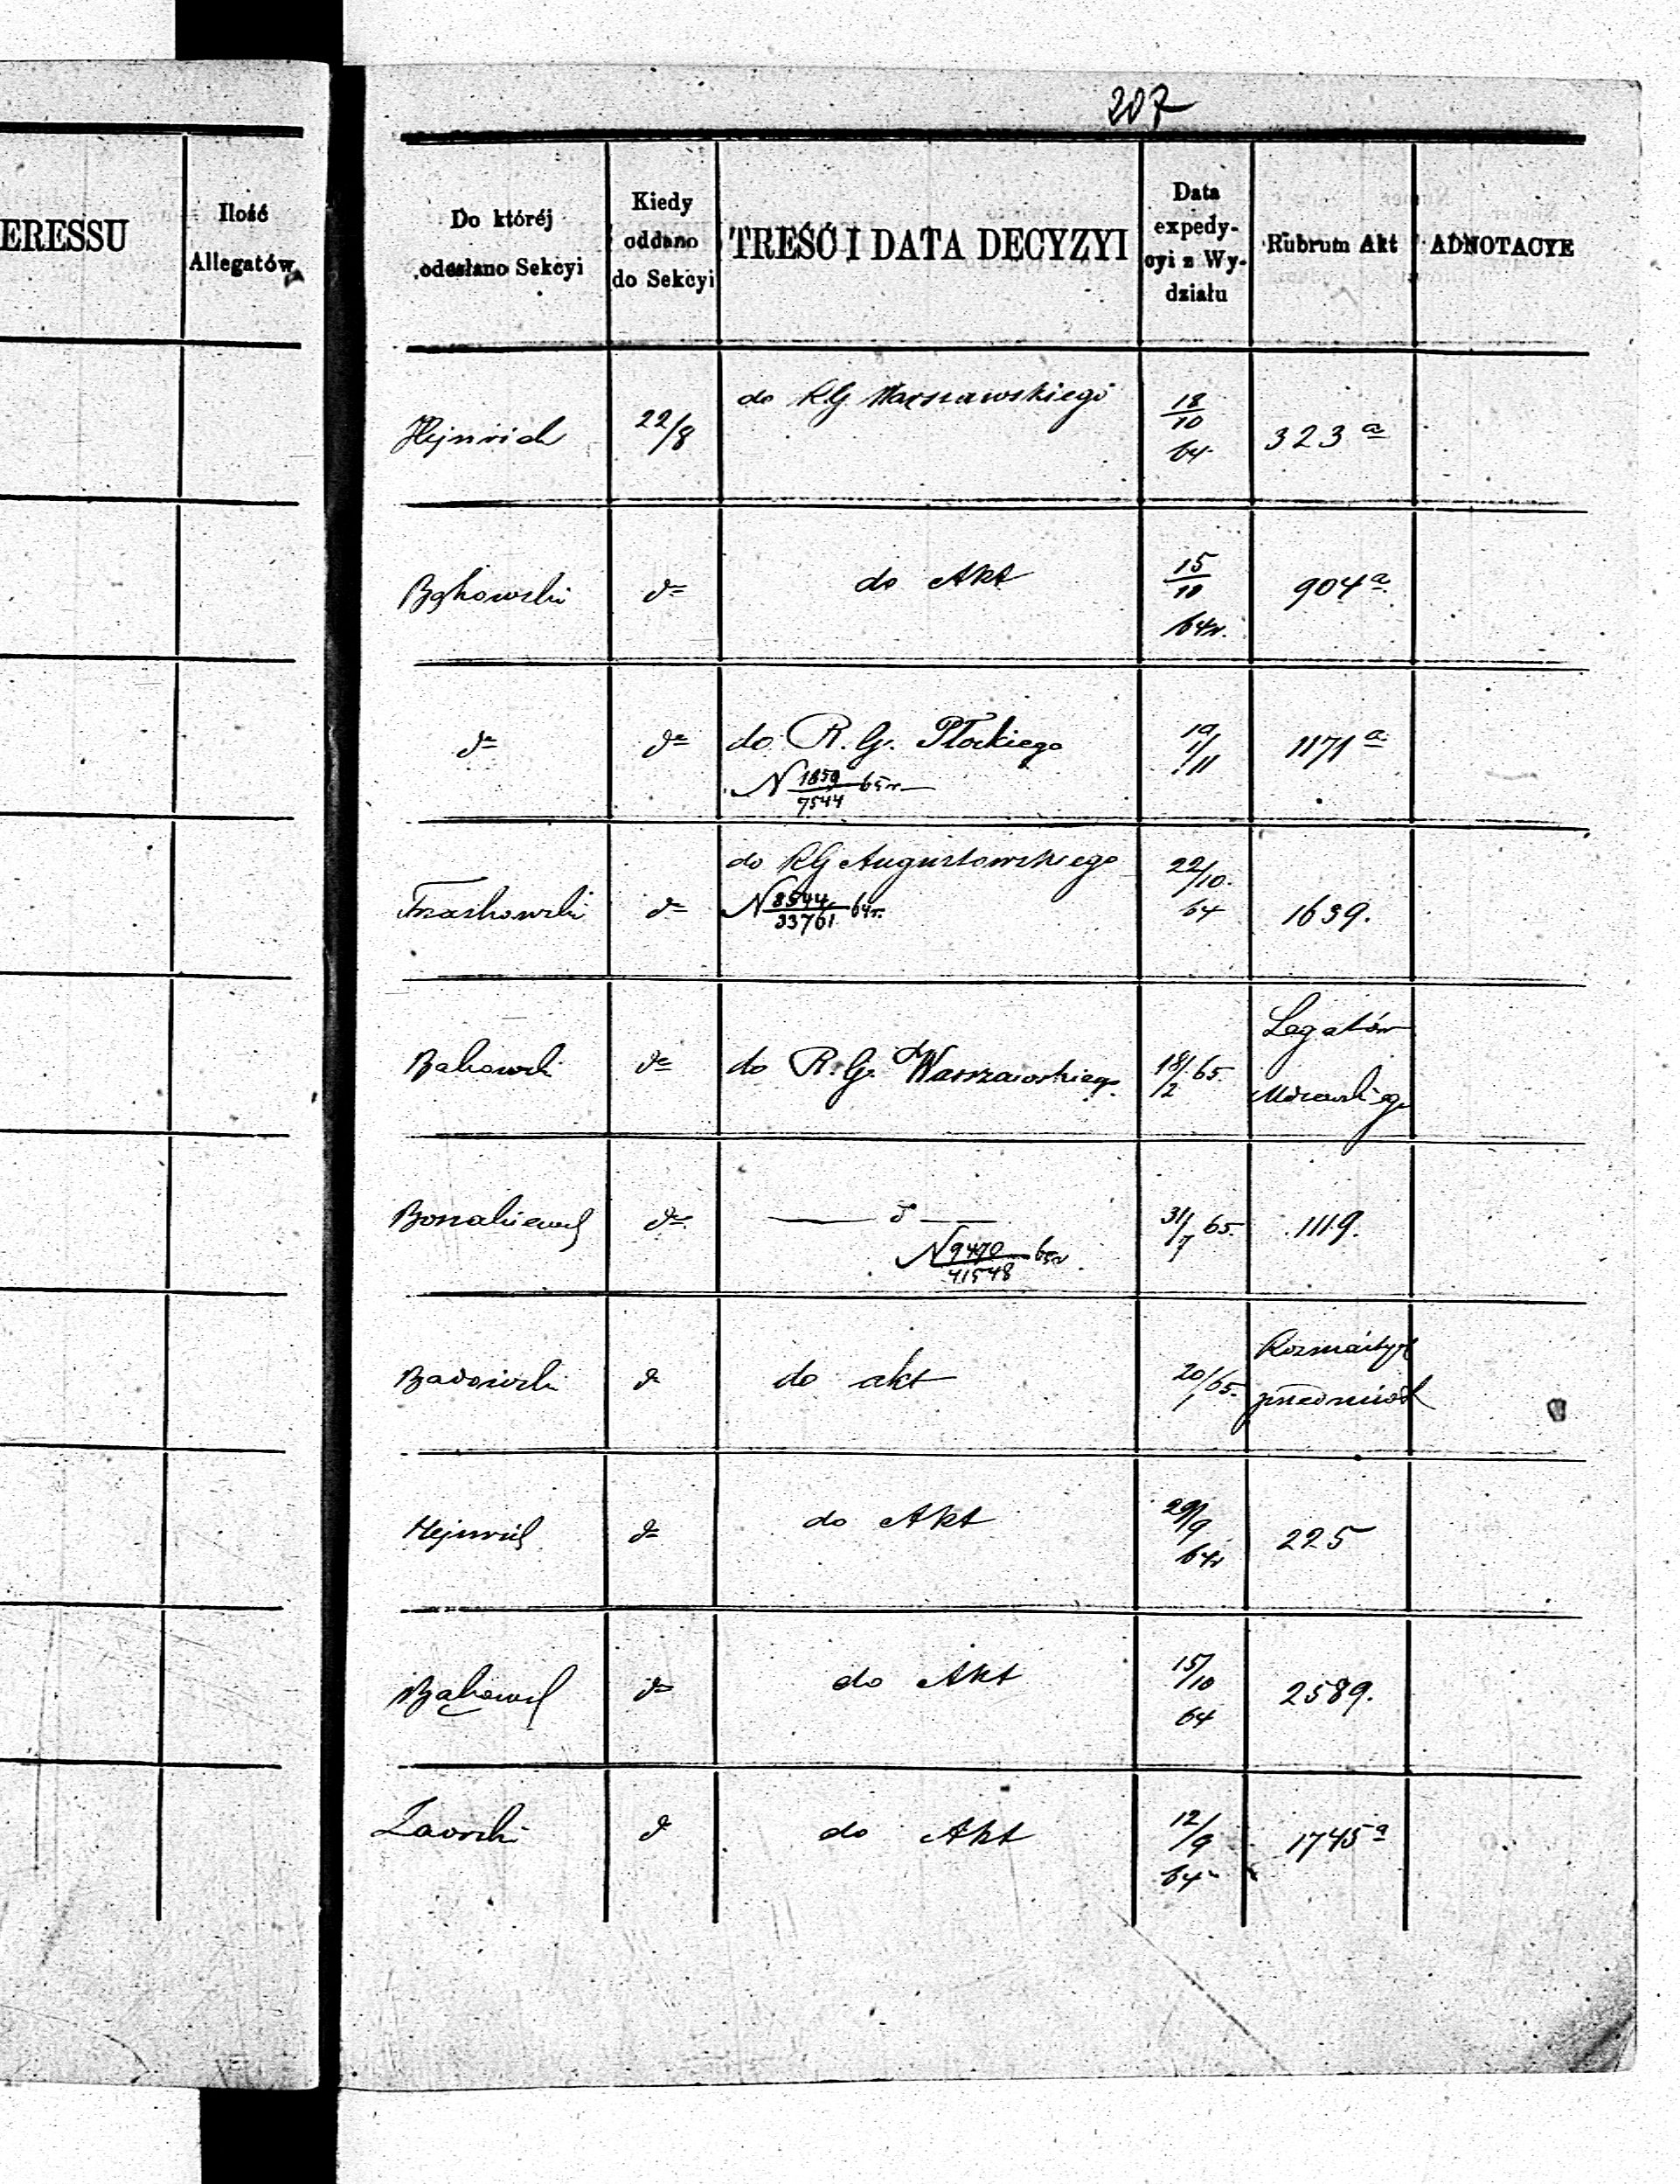 207
ERESSU
Ilość
Allegatów
Do któréj
odesłano Sekcyi
Kiedy
oddano
do Sekcyi
TREŚĆ I DATA DECYZYI
Data
expedy-
cyi z Wy-
działu
Rubrum Akt
ADNOTACYE
Hejnrich
22/8
do RG Warszawskiego
18/10
64
323 a
Bąkowski
do Akt
15/10
64r.
904 a
do R. G. Płockiego
N 1859/7544 65r
1171 a
do RG Augustowskiego
N 8544/33761 64r.
22/10
64
1639.
Bakowski
do R. G. Warszawskiego
18/2 65.
Legatów
N 9470/41548 65r
31/7 65.
1119.
do akt
20/1 65.
Rozmaitych
przedmiot
Hejnrich
do Akt
29/9
64r
225
do Akt
15/10
64
2589.
do Akt
12/9
64
1745 a